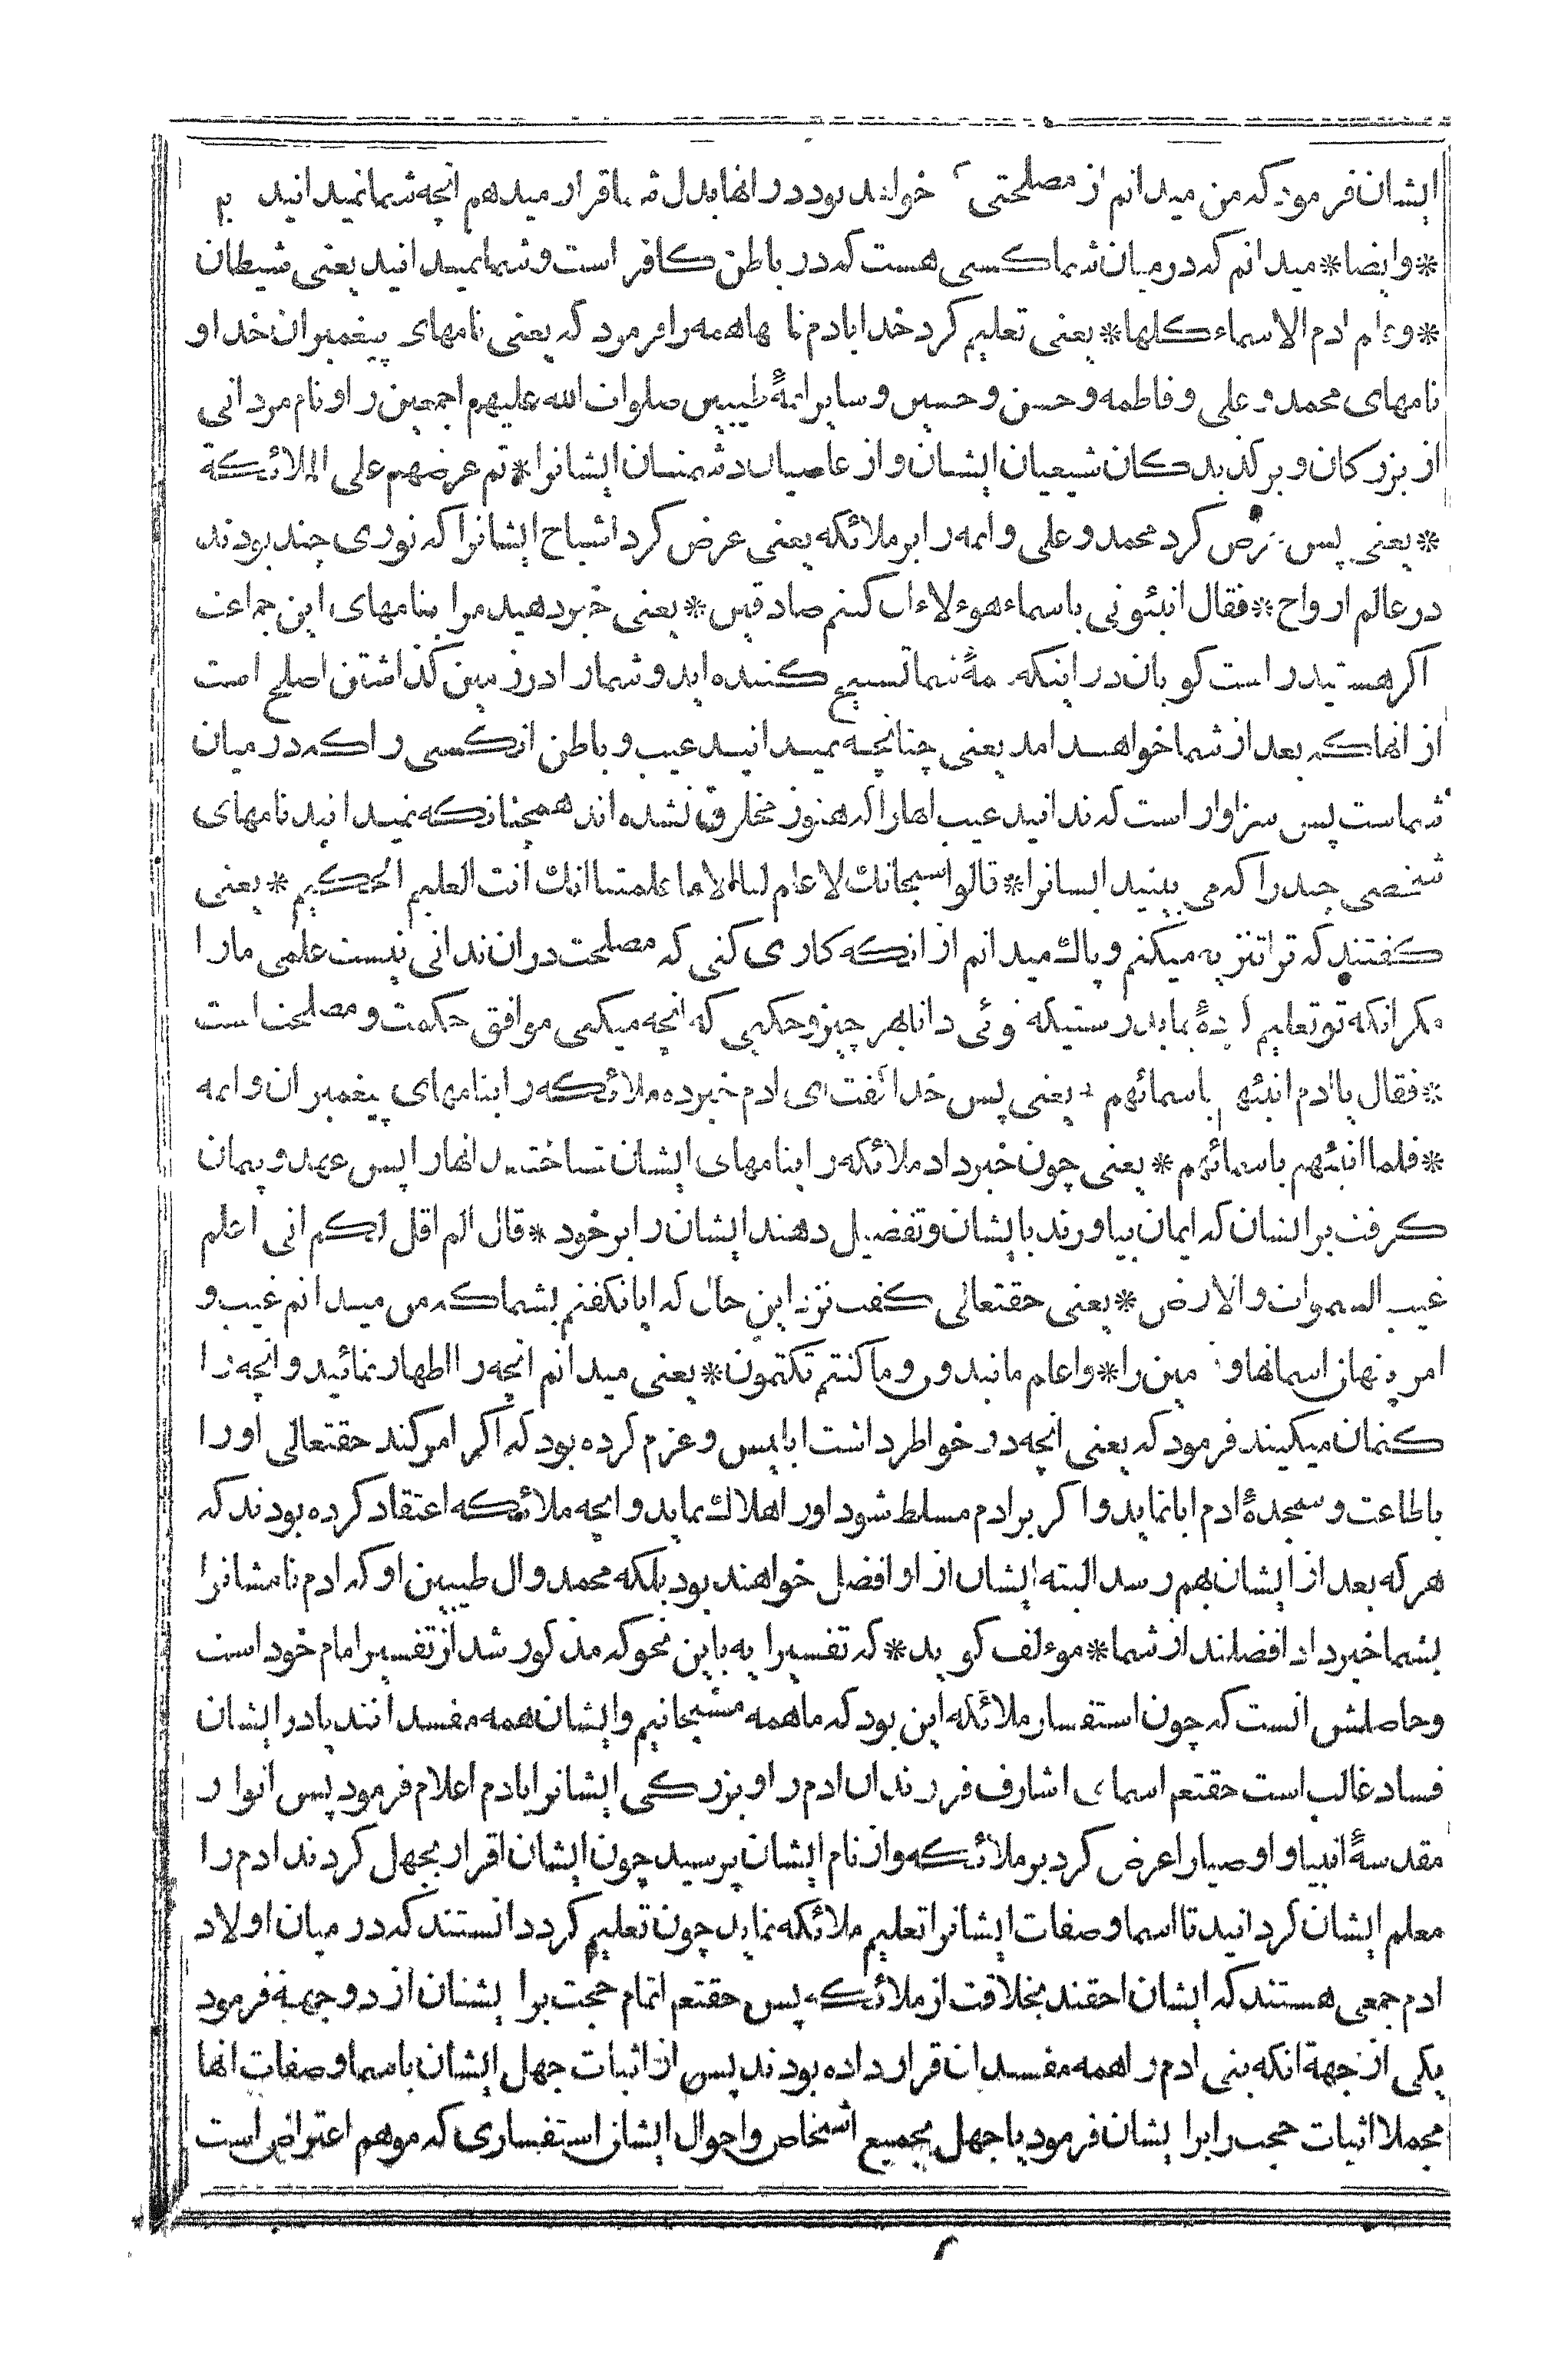 ایشان فرمود که من میدانم از مصلحتی که خواهد بود در انها بدل شما قرار میدهم انچه شما نمیدانید
* و ایضا * میدانم که در میان شما کسی هست که در باطن کافر است و شما نمیدانید یعنی شیطان
* و علم ادم الاسماء کلها * یعنی تعلیم کرد خدا بادم نامها همه را فرمود که یعنی نامهای پیغمبران خدا و
نامهای محمد و علی و فاطمه و حسن و حسین و سایر ائمهٔ طیبین صلوات الله علیهم اجمعین را و نام مردانی
از بزرکان و برکذیدکان شیعیان ایشان و از عاصیان دشمنان ایشانرا * ثم عرضهم علی الملائکة
* یعنی پس عرض کرد محمد و علی و ائمه را بر ملائکه یعنی عرض کرد اشباح ایشانرا که نوری چند بودند
در عالم ارواح * فقال انبئونی باسماء هوءلاء ان کنتم صادقین * یعنی خبر دهید مرا بنامهای این جماعت
اکر هستید راست کویان در اینکه همهٔ شما تسبیح کننده اید و شما را در زمین کذاشتن اصلح است
از انها که بعد از شما خواهند امد یعنی چنانچه نمیدانید عیب و باطن انکسی را که در میان
شماست پس سزاوار است که ندانید عیب انها را که هنوز مخلوق نشده اند همچنانکه نمیدانید نامهای
شخصی چند را که می بینید ایشانرا * قالوا سبحانك لا علم لنا الا ما علمتنا انك انت العلیم الحکیم * یعنی
کفتند که ترا تنزیه میکنم و پاك میدانم از انکه کاری کنی که مصلحت در ان ندانی نیست علمی ما را
مکر انکه تو تعلیم کردهٔ بما بدرستیکه توئی دانا بهر چیز و حکیمی که انچه میکنی موافق حکمت و مصلحت است
* فقال یا ادم انبئهم باسمائهم * یعنی پس خدا کفت ای ادم خبر ده ملائکه را بنامهای پیغمبران و ائمه
* فلما انبئهم باسمائهم * یعنی چون خبر داد ملائکه را بنامهای ایشان شناختند انها را پس عهد و پیمان
کرفت بر ایشان که ایمان بیاورند بایشان و تفضیل دهند ایشان را بر خود * قال الم اقل لکم انی اعلم
غیب السموات والارض * یعنی حقتعالی کفت نزد این حال که ایا نکفتم بشما که من میدانم غیب و
امر پنهان اسمانها و زمین را * واعلم ما تبدون وما کنتم تکتمون * یعنی میدانم انچه را اظهار نمائید و انچه را
کتمان میکنید فرمود که یعنی انچه در خواطر داشت ابلیس و عزم کرده بود که اکر امر کند حقتعالی او را
باطاعت و سجدهٔ ادم ابا نماید و اکر بر ادم مسلط شود او را هلاك نماید و انچه ملائکه اعتقاد کرده بودند که
هر که بعد از ایشان بهم رسد البته ایشان از او افضل خواهند بود بلکه محمد و ال طیبین او که ادم نامشانرا
بشما خبر داد افضلند از شما * موءلف کوید * که تفسیر ایه باین نحو که مذکور شد از تفسیر امام خود است
و حاصلش انست که چون استفسار ملائکه این بود که ما همه مسبحانیم و ایشان همه مفسدانند یا در ایشان
فساد غالب است حقتعم اسمای اشارف فرزندان ادم را و بزرکی ایشانرا بادم اعلام فرمود پس انوار
مقدسهٔ انبیا و اوصیا را عرض کرد بر ملائکه و از نام ایشان پرسید چون ایشان اقرار بجهل کردند ادم را
معلم ایشان کردانید تا اسما و صفات ایشانرا تعلیم ملائکه نماید چون تعلیم کرد دانستند که در میان اولاد
ادم جمعی هستند که ایشان احقند بخلافت از ملائکه پس حقتعم اتمام حجت بر ایشان از دو جهة فرمود
یکی از جهة انکه بنی ادم را همه مفسدان قرار داده بودند پس از اثبات جهل ایشان باسما و صفات انها
مجملا اثبات حجت را بر ایشان فرمود با جهل بجمیع اشخاص و احوال ایشان استفساری که موهم اعتراض است